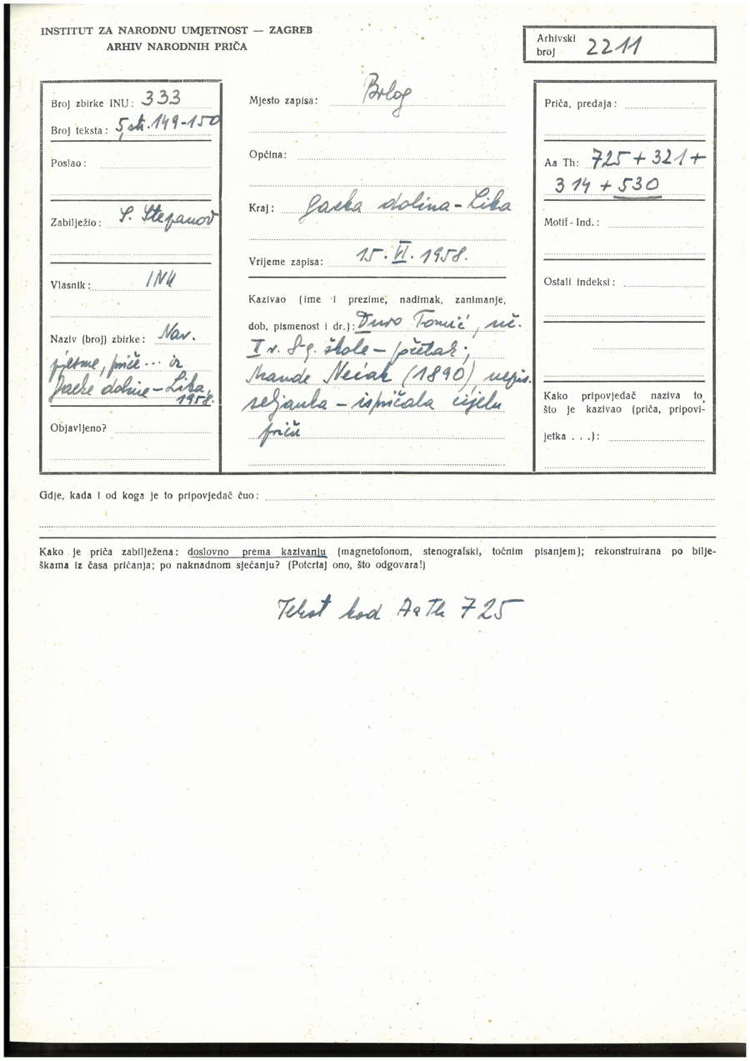 INSTITUT ZA NARODNU UMJETNOST — ZAGREB
ARHIV NARODNIH PRIČA
Arhivski
broj 2211
Broj zbirke INU: 333
Broj teksta: 5, str. 149-150
Poslao:
Zabilježio: S. Stepanov
Vlasnik: INU
Naziv (broj) zbirke: Nar.
pjesme, priče... iz
Gacke doline – Lika,
1958.
Objavljeno?
Mjesto zapisa: Brlog
Općina:
Kraj: Gacka dolina – Lika
Vrijeme zapisa: 15. VI. 1958.
Kazivao (ime i prezime, nadimak, zanimanje,
dob, pismenost i dr.): Đuro Tomić, uč.
I r. 8-g. škole – početak;
Mande Nećak (1890), nepis.
seljanka – ispričala cijelu
priču
Priča, predaja:
Aa Th: 725 + 321 +
314 + 530
Motif - Ind.:
Ostali indeksi:
Kako pripovjedač naziva to
što je kazivao (priča, pripovi-
jetka . . .):
Gdje, kada i od koga je to pripovjedač čuo:
Kako je priča zabilježena: doslovno prema kazivanju (magnetofonom, stenografski, točnim pisanjem); rekonstruirana po bilje-
škama iz časa pričanja; po naknadnom sjećanju? (Potcrtaj ono, što odgovara!)
Tekst kod AaTh 725